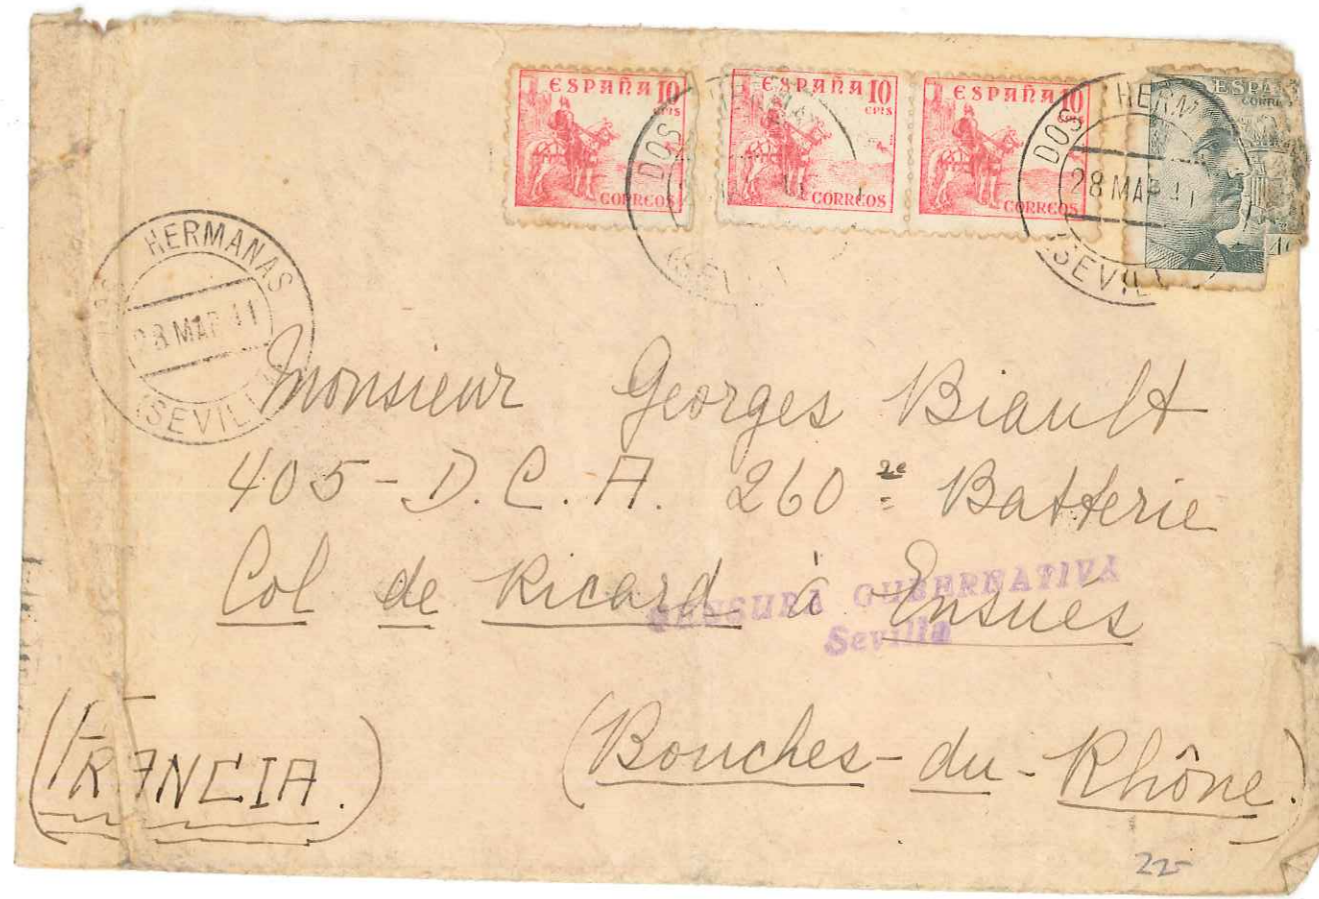 ESPAÑA 10
CTS
CORREOS
ESPAÑA 10
CTS
CORREOS
ESPAÑA 10
CORREOS
ESPAÑ
CORRE
DOS HERMA
(SEVI
DOS HERM
28 MAR 41
(SEVIL
HERMANAS
28 MAR 41
(SEVIL
Monsieur Georges Biault
405 - D.C.A. 260 2e Batterie
Col de Ricard à Ensués
CENSURA GUBERNATIVA
Sevilla
(FRANCIA.)
(Bouches-du-Rhône.)
22-